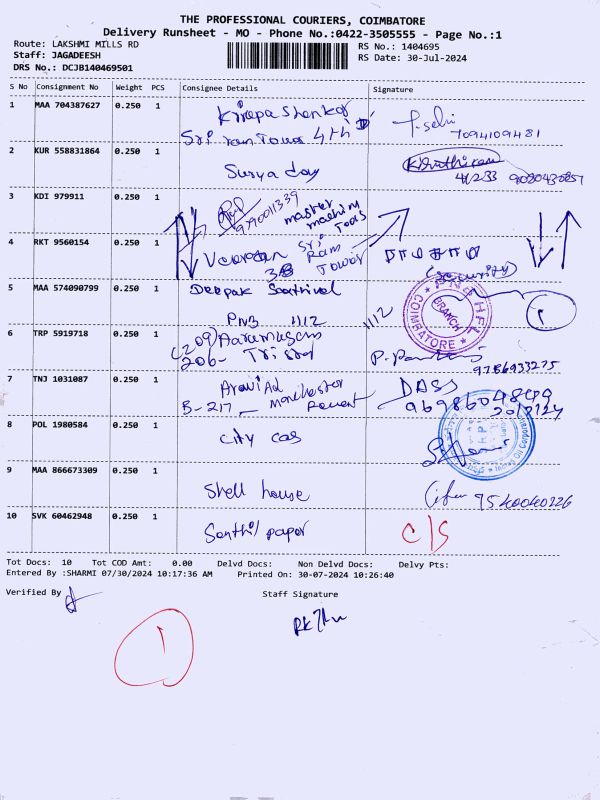 THE PROFESSIONAL COURIERS, COIMBATORE
Delivery Runsheet - MO - Phone No.:0422-3505555 - Page No.:1
Route: LAKSHMI MILLS RD
Staff: JAGADEESH
DRS No.: DCJB140469501
RS No.: 1404695
RS Date: 30-Jul-2024
S No Consignment No Weight PCS Consignee Details Signature
1 MAA 704387627 0.250 1
7094109481
2 KUR 558831864 0.250 1
Surya day
3 KDI 979911 0.250 1
9790011339
master
Sri Tools
4 RKT 9560154 0.250 1
Ram
Towar
(Security)
5 MAA 574090799 0.250 1
Deepak
PNB 1112
1112
PNB HFL
BRANCH
COIMBATORE
1
6 TRP 5919718 0.250 1
(209) Aarumugam
206-
9786933275
7 TNJ 1031087 0.250 1
Aravind Manchester
B-217
DASS
8 POL 1980584 0.250 1
City Gas
9 MAA 866673309 0.250 1
Shell house
9540040226
10 SVK 60462948 0.250 1
Senthil paper
C/S
Tot Docs: 10 Tot COD Amt: 0.00 Delvd Docs: Non Delvd Docs: Delvy Pts:
Entered By :SHARMI 07/30/2024 10:17:36 AM Printed On: 30-07-2024 10:26:40
Verified By Staff Signature
1